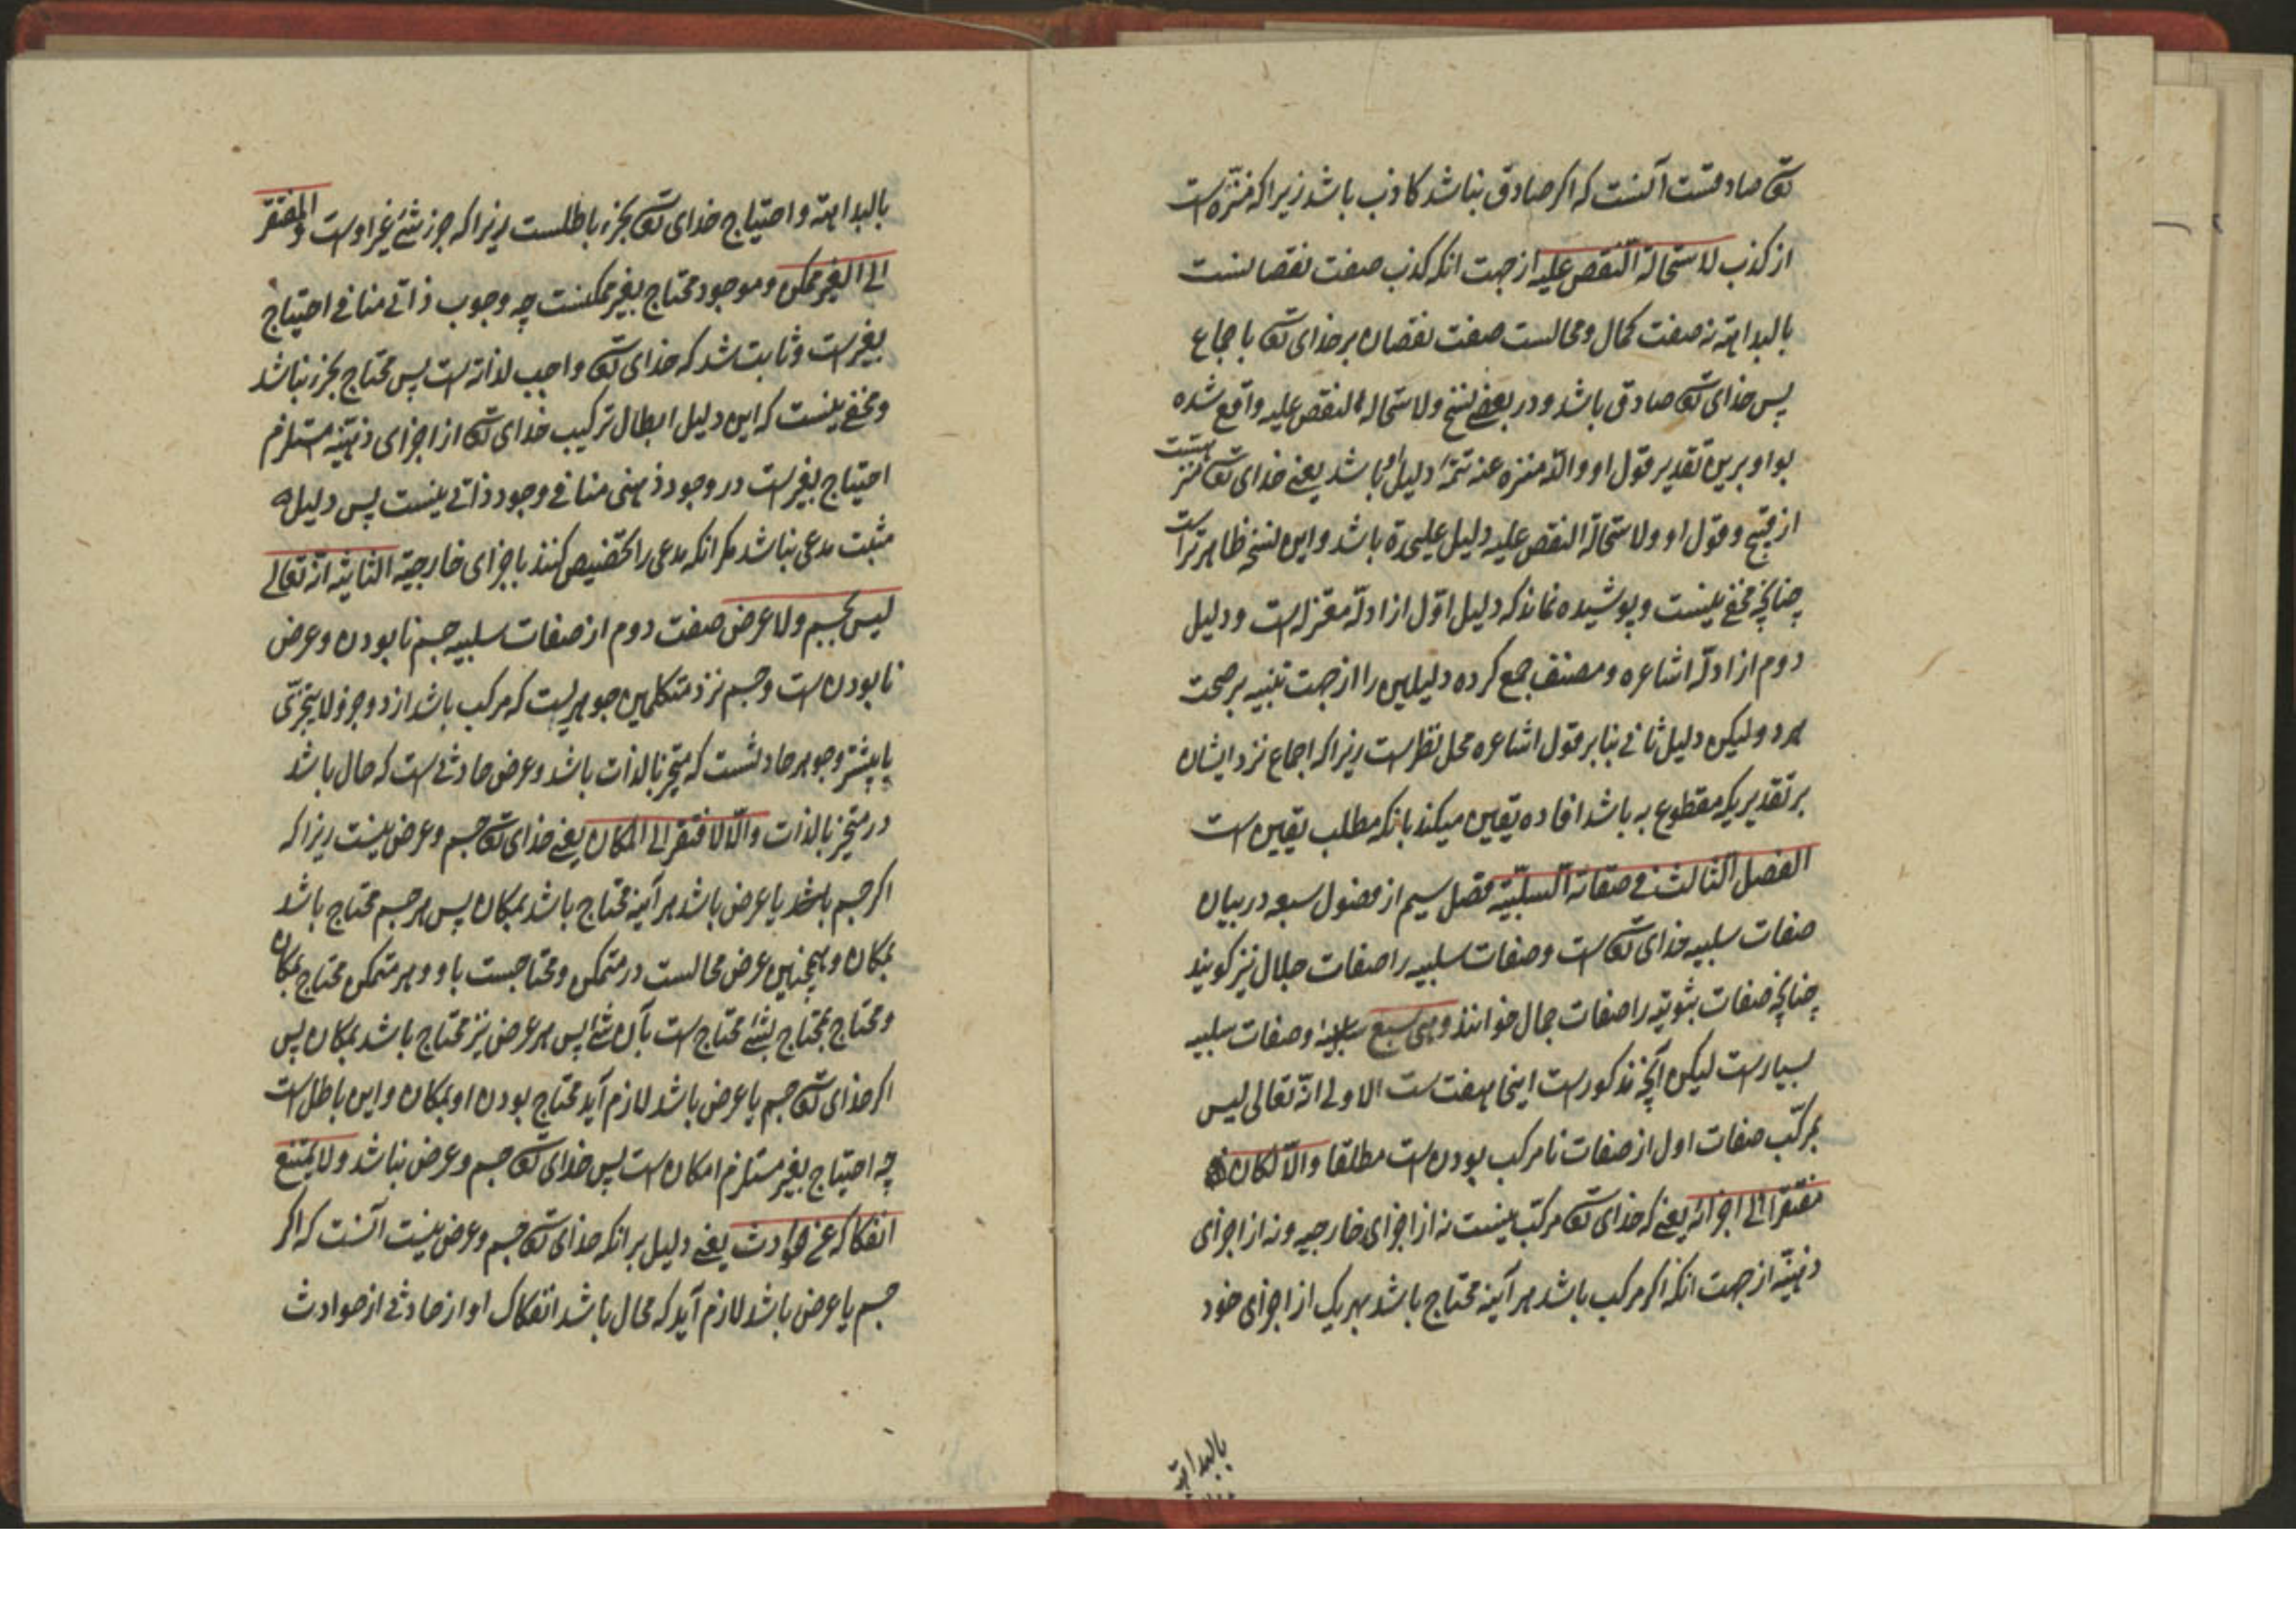 تعالی صادقست آنست که اکر صادق نباشد کاذب باشد زیرا که منزّه است
از کذب لاستحالة النقص علیه از جهت انکه کذب صفت نقصانست
بالبداهة نه صفت کمال و محالست صفت نقصان بر خدای تعالی باجماع
پس خدای تعالی صادق باشد و در بعضی نسخ ولاستحاله النقص علیه واقع شده
بواو برین تقدیر قول او والله منزه عنه تتمهٔ دلیل اول باشد یعنی خدای تعالی منزه است
از قبیح و قول او ولاستحالة النقص علیه دلیل علیحدة باشد و این نسخه ظاهرتر است
چنانچه مخفی نیست و پوشیده نماند که دلیل اوّل از ادلّه معتزله است و دلیل
دوم از ادلّه اشاعره و مصنف جمع کرده دلیلین را از جهت تنبیه بر صحت
هر دو ولیکن دلیل ثانی بنابر قول اشاعره محل نظر است زیرا که اجماع نزد ایشان
بر تقدیریکه مقطوع به باشد افاده یقین میکند بانکه مطلب یقین است
الفصل الثالث فی صفاته السلبیّة فصل سیم از فصول سبعه در بیان
صفات سلبیه خدای تعالی است و صفات سلبیه را صفات جلال نیز کویند
چنانچه صفات ثبوتیه را صفات جمال خوانند وهی سبع سلبیة و صفات سلبیه
بسیار است لیکن آنچه مذکور است اینجا هفت است الاولی انّه تعالی لیس
بمرکّب صفات اول از صفات نامرکب بودن است مطلقا والاّ لکان
مفتقرا الی اجزائه یعنی که خدای تعالی مرکّب نیست نه از اجزای خارجیه و نه از اجزای
ذهنیّه از جهت انکه اکر مرکب باشد هر آینه محتاج باشد بهریک از اجزای خود
بالبداهة
بالبداهة و احتیاج خدای تعالی بجزء باطلست زیرا که جزء شئ غیر اوست والمفتقر
الی الغیر ممکن و موجود محتاج بغیر ممکنست چه وجوب ذاتی منافی احتیاج
بغیر است و ثابت شد که خدای تعالی واجب لذاته است پس محتاج بجزء نباشد
و مخفی نیست که این دلیل ابطال ترکیب خدای تعالی از اجزای ذهنیّه مستلزم
احتیاج بغیر است در وجود ذهنی منافی وجود ذاتی نیست پس دلیل
مثبت مدعی نباشد مکر انکه مدعی را تخصیص کنند باجزای خارجیه الثانیة انه تعالی
لیس بجسم ولا عرض صفت دوم از صفات سلبیه جسم نابودن و عرض
نابودن است و جسم نزد متکلمین جوهریست که مرکب باشد از دو جزؤ لا یتجزّی
یا بیشتر و جوهر حادثست که متحیّز بالذات باشد و عرض حادثی است که حال باشد
در متحیّز بالذات والاّ لافتقر الی المکان یعنی خدای تعالی جسم و عرض نیست زیرا که
اکر جسم باشد یا عرض باشد هر آینه محتاج باشد بمکان پس هر جسم محتاج باشد
بمکان و همچنین عرض محالست در متمکن و محتاجست باو و هر متمکن محتاج بمکان
و محتاج بمحتاج بشئ محتاج است بآن شئ پس هر عرض نیز محتاج باشد بمکان پس
اکر خدای تعالی جسم یا عرض باشد لازم آید محتاج بودن او بمکان و این باطل است
چه احتیاج بغیر مستلزم امکان است پس خدای تعالی جسم و عرض نباشد ولا یمتنع
انفکاکه عن حوادث یعنی دلیل بر انکه خدای تعالی جسم و عرض نیست آنست که اکر
جسم یا عرض باشد لازم آید که محال باشد انفکاک او از حادثی از حوادث